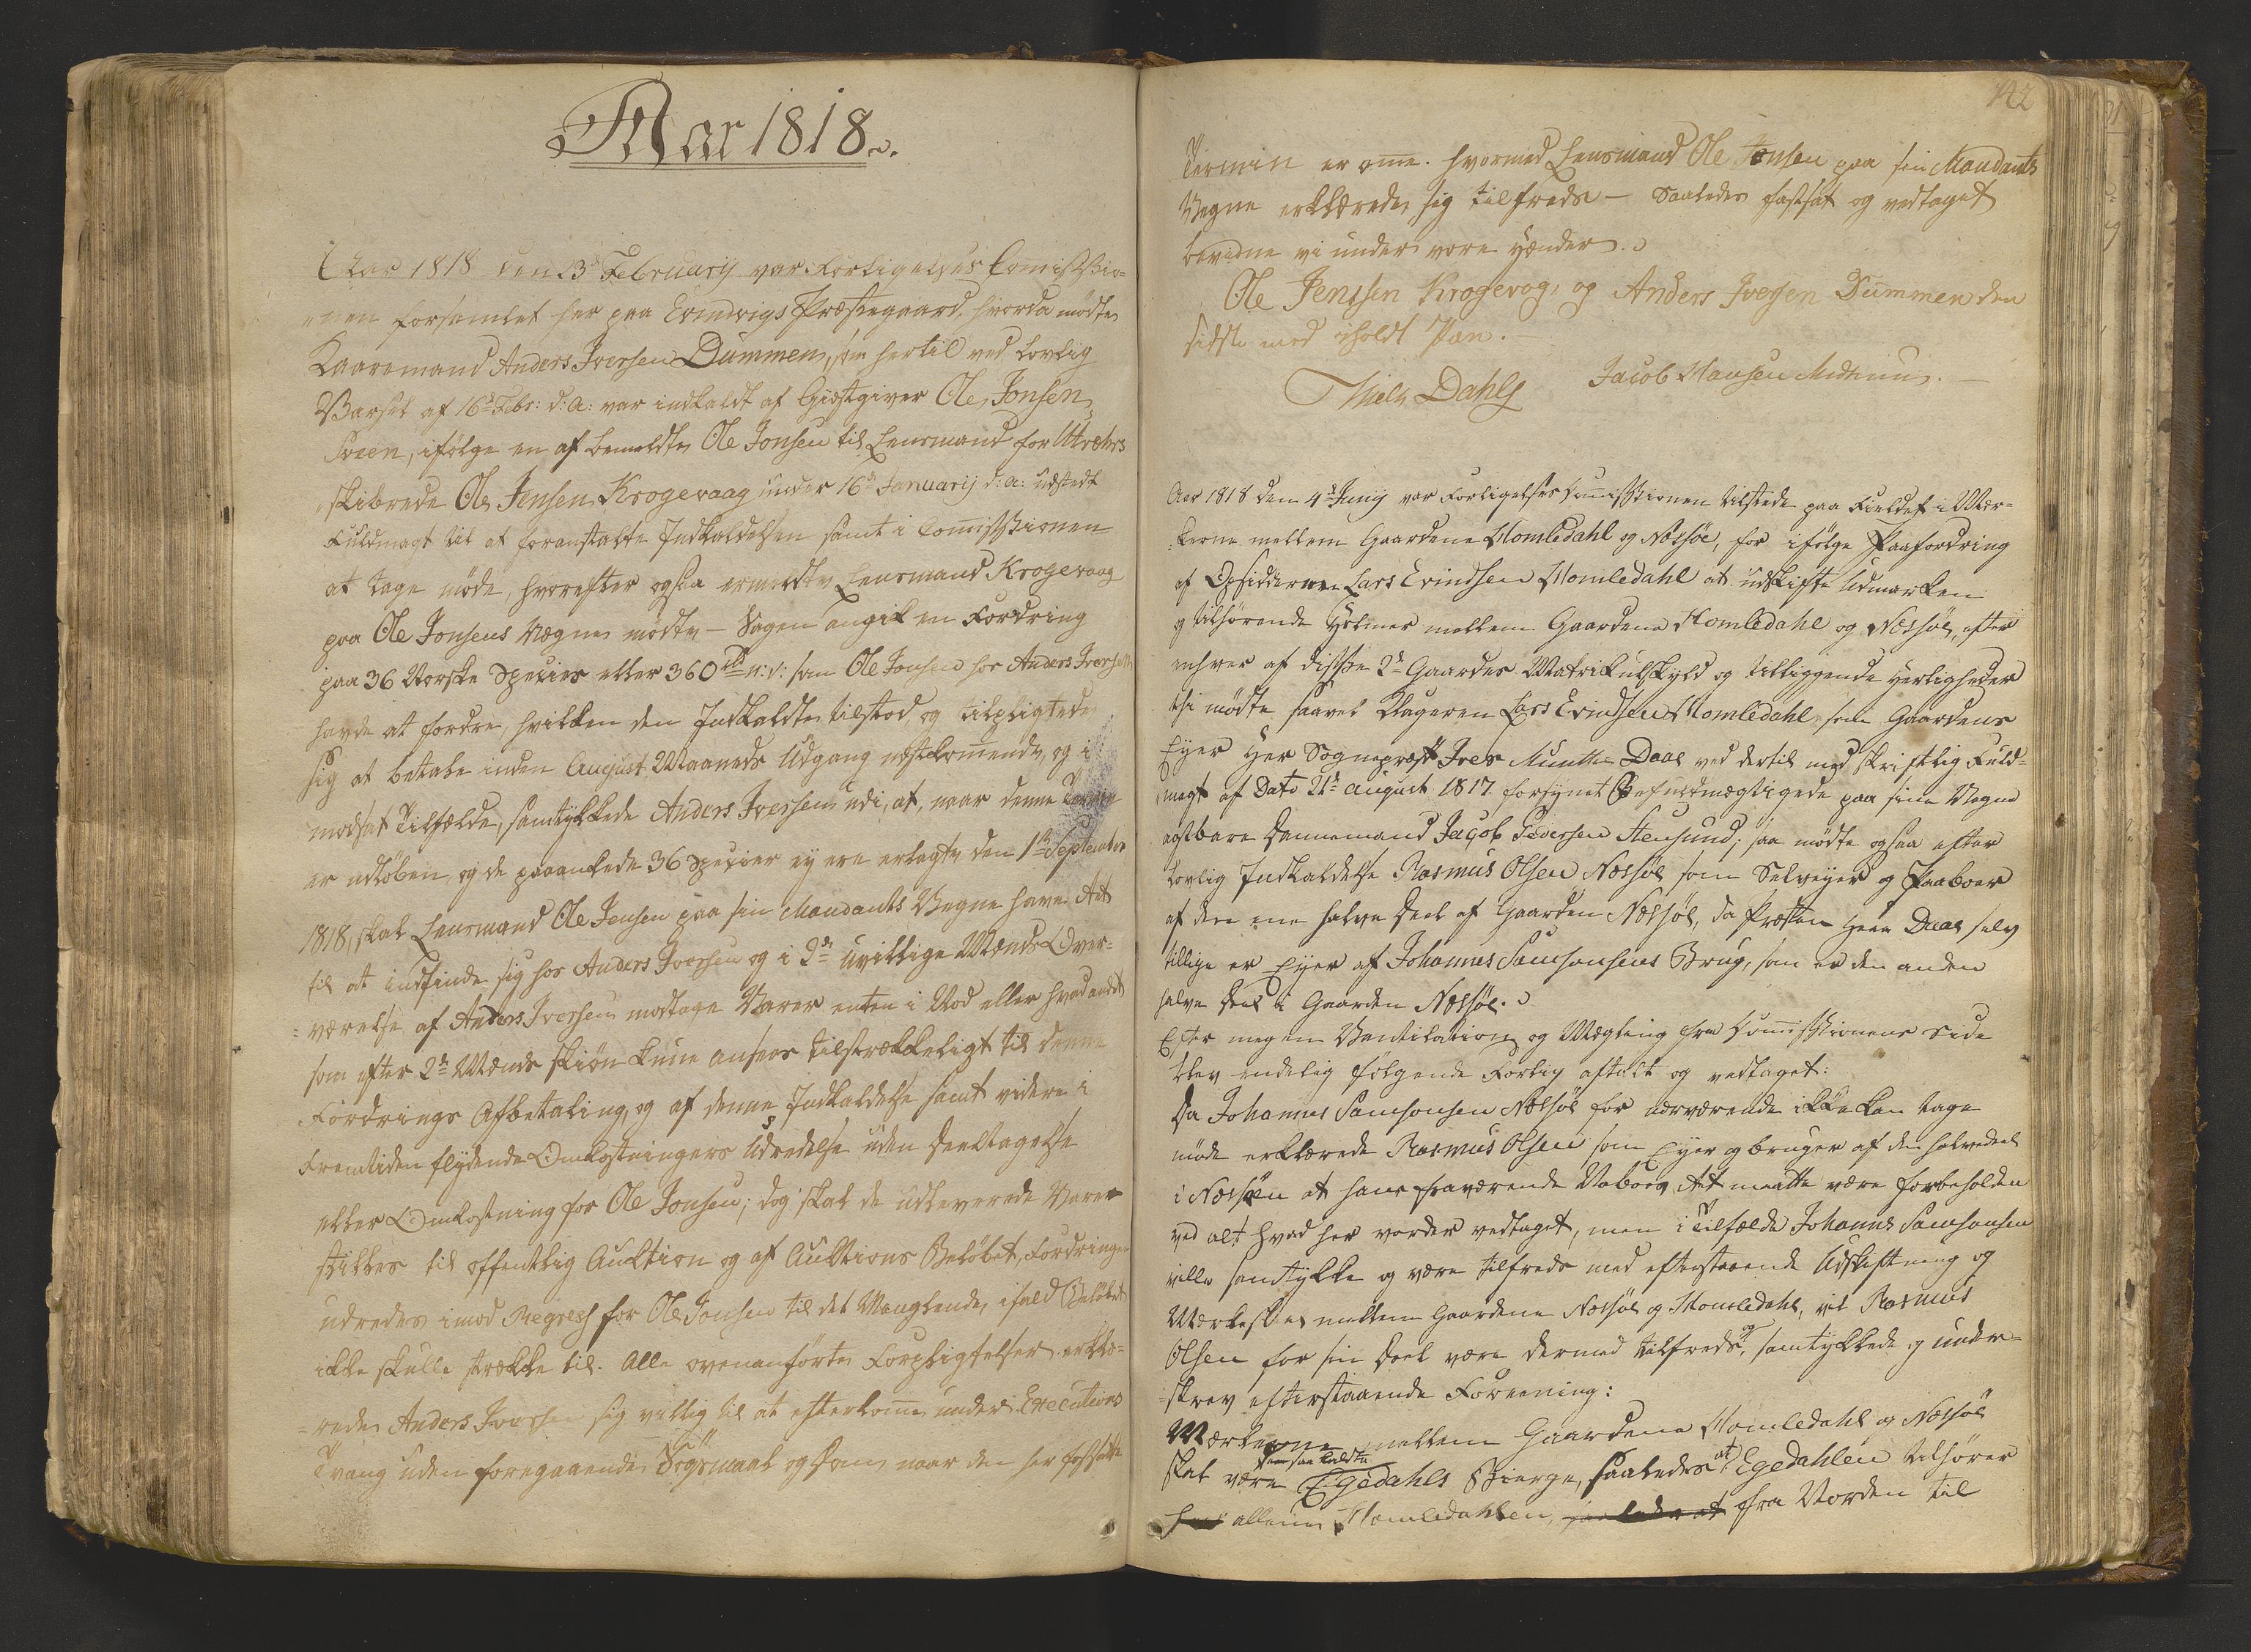 Aar 1818.
Aar 1818 den 23de Februarij var Forligelses Comissio-
nen forsamlet her paa Evindvigs Præstegaard, hvorda mødte
Kaaremand Anders Iversen Dummen, som hertil ved lovlig
Varsel af 16de Febr: d: A: var indkaldt af Giæstgiver Ole Jonsen
ifølge en af bemeldte Ole Jonsen til Lensmand for Utvehrs
skibrede Ole Jensen Krogevaag under 16de Januarij d: a: udstedt
Fuldmagt til at foranstalte Indkaldelsen samt i Comissionen
at tage møde, hvorefter ogsaa ermeldte Lensmand Krogevaag
paa Ole Jonsens Vægne mødte – Sagen angik en Fordring
paa 36 Norske Species eller 360 rd n: v: som Ole Jonsen hos Anders Iversen
havde at fordre, hvilken den Indkaldte tilstod, og tilpligtede
sig at betale inden August Maaneds Udgang næstkommende, og i
modsat Tilfælde, samtykkede Anders Iversen udi, at, naar denne Termin
er udløben, og de paaankede 36 Specier ej ere erlagte den 1te September
1818, skal Lensmand Ole Jensen paa sin Mandants Vegne have Ret
til at indfinde sig hos Anders Iversen og i 2de uvillige Mænds Over-
=værelse af Anders Iversen modtage Varer enten i Nod eller hvad andet
som efter 2de Mænds skiøn kune ansees tilstrækkeligt til denne
Fordrings Afbetaling, og af denne Indkaldelse samt videre i
Fremtiden flydende Omkostningers Udredelse uden Deeltagelse
eller Omkostning for Ole Jonsen; dog skal de udleverede Varer
stilles til offentlig Auktion og af Auktions Beløbet, Fordringen
udredes imod Regress for Ole Jonsen til det Manglende, ifald Beløbet
ikke skulle strække til. Alle ovenanførte Forpligtelser erklæ-
=rede Anders Iversen sig villig til at efterkome under Executions
Tvang uden foregaaende Søgsmaal og Dom naar den her fastsatte
142
Termin er ome. hvormed Lensmand Ole Jensen paa sin Mandants
Vegne erklærede sig tilfreds – Saaledes fastsat og vedtaget
bevidne vi under vore Hænder.
Ole Jensen Krogevog, og Anders Iversen Dummen den
sidste med iholdt Pen. –
Niels Dahl Jacob Hansen
Aar 1818 den 4de Junij var Forligelses Comissionen tilstede paa Fieldet i Mer-
=kerne mellem Gaardene Homledahl og Nessøe, for ifølge Paafordring
af Opsidderen Lars Evindsen Homledahl at udskifte Udmarken
og tilhørende Holmer mellem Gaardene Homledahl og Nessøe, efter
enhver af disse 2de Gaardes Matrikulskyld og tilliggende Herligheder
thi mødte saavel Klageren Lars Evindsen Homledahl, som Gaardens
Eyer Her Sognepræst Iver Munthe Daae ved dertil med skriftlig Fuld-
magt af Dato 21de August 1817 forsynet Befuldmægtigede paa sine Vegne
agtbare Dannemand Jacob Pedersen Stensund; saa mødte ogsaa efter
lovlig Indkaldelse Rasmus Olsen Nessøe som Selvejer og Paaboer
af den ene halve Deel af Gaarden Nessøe, da Præsten Herr Daae selv
tillige er Eyer af Johannes Samsonsens Brug, som er den anden
halve Deel i Gaarden Nessøe.
Efter megen Ventilation og Mægling fra Comissionens Side
blev endelig følgende Forlig aftalt og vedtaget:
Da Johannes Samsonsen Nessøe for nærværende ikke kan tage
møde erklærede Rasmus Olsen som Eyer og bruger af den halvedeel
i Nessøen at hans fraværende Naboes Ret maatte være forbeholden
ved alt hvad her vorder vedtaget, men i Tilfælde Johannes Samsonsen
ville samtykke og være tilfreds med efterstaaende Udskiftning og
mellem Gaardene Nessøe og Homledahl, vil Rasmus
Olsen for sin Deel være dermed tilfreds, og samtykkede og under-
=skrev efterstaaende Forening:
Merkerne mellem Gaardene Homledahl og Nessøe
skal være den saa kaldte Egedahls Bierge, saaledes at Egedahlen tilhører
allene Homledahlen, saaledes at fra Norden til